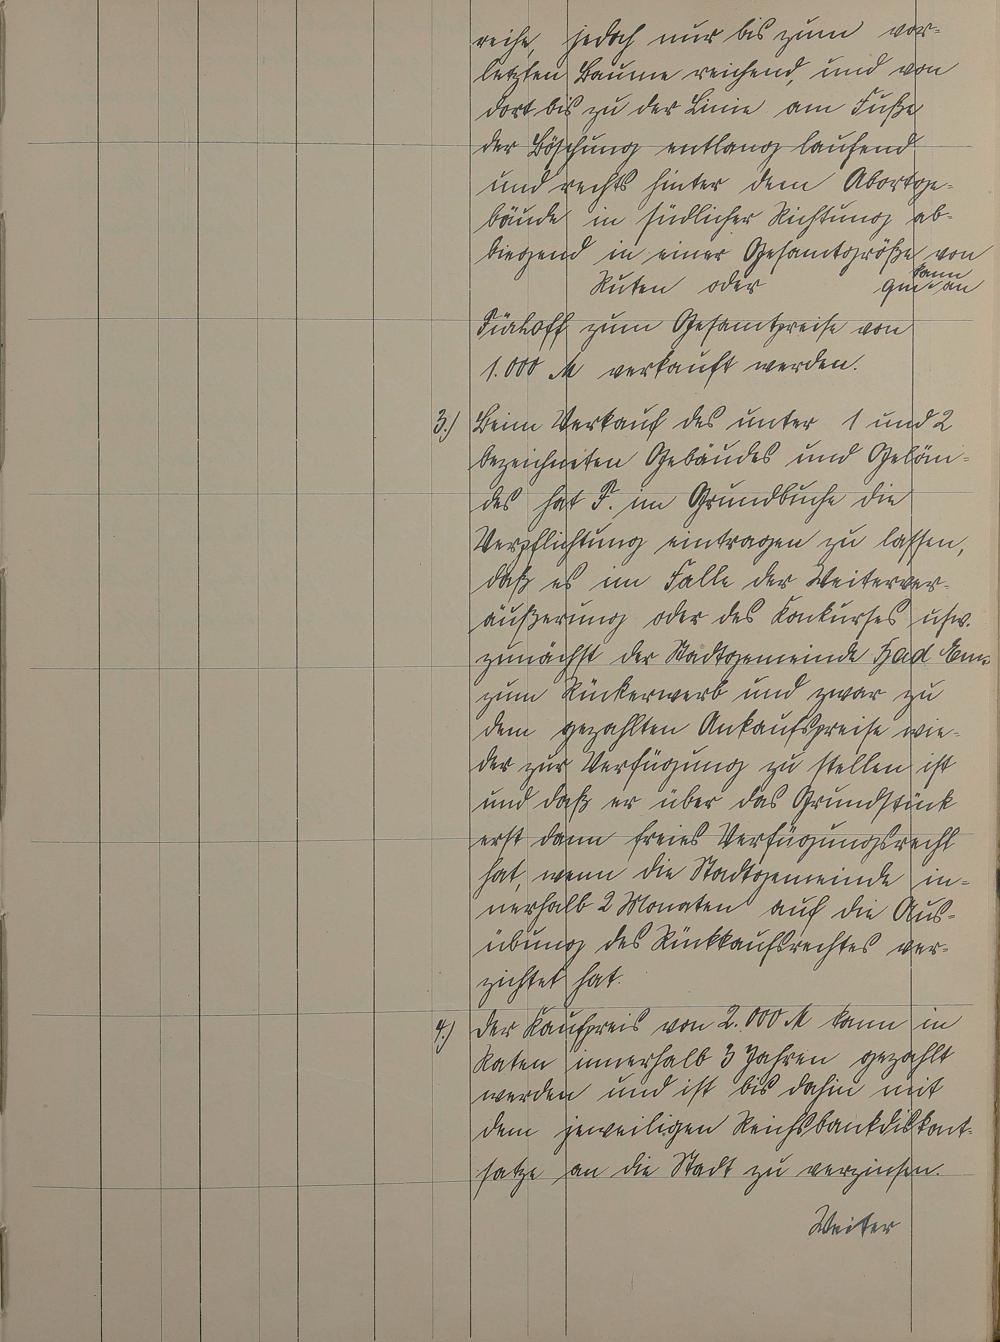 reihe, jedoch nur bis zum vor-
letzten Baume reichend, und von
dort bis zu der Linie am Fuße
der Böschung entlang laufend
und rechts hinter dem Abortge-
bäude in südlicher Richtung ab-
biegend in einer Gesamtgröße von
Ruten oder qm kann an
zum Gesamtpreise von
1.000 M verkauft werden.
3.) Beim Verkauf des unter 1 und 2
bezeichneten Gebäudes und Gelän-
des hat F. im Grundbuche die
Verpflichtung eintragen zu lassen,
daß es im Falle der Weiterver-
äußerung oder des Konkurses usw.
zunächst der Stadtgemeinde Bad Ems
zum Rückerwerb und zwar zu
dem gezahlten Ankaufspreise wie-
der zur Verfügung zu stellen ist
und daß er über das Grundstück
erst dann freies Verfügungsrecht
hat, wenn die Stadtgemeinde in-
nerhalb 2 Monaten auf die Aus-
übung des Rückkaufsrechtes ver-
zichtet hat.
4.) Der Kaufpreis von 2.000 M kann in
Raten innerhalb 3 Jahren gezahlt
werden und ist bis dahin mit
dem jeweiligen Reichsbankdiskont-
satze an die Stadt zu verzinsen.
Weiter